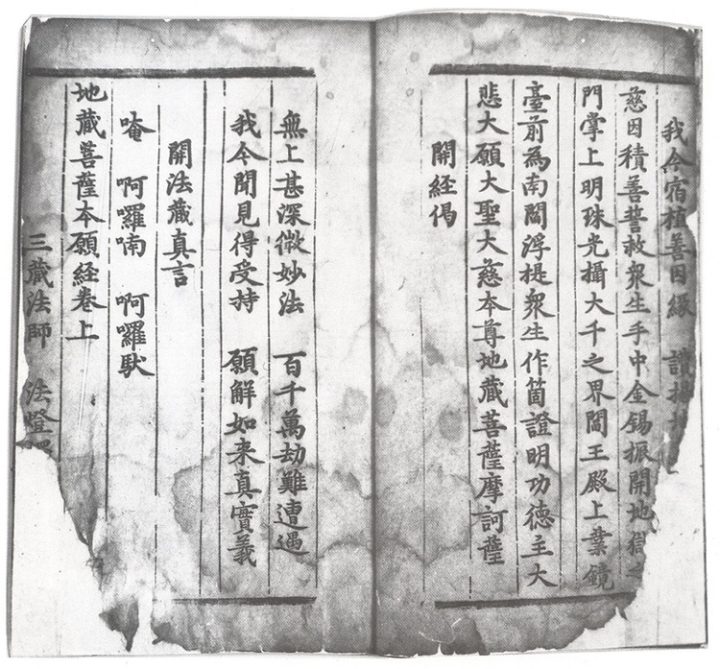 我今宿植善因緣 讃揚
慈因積善誓救衆生手中金錫振開地獄
門掌上明珠光攝大千之界閻王殿上業鏡
臺前為南閻浮提衆生作箇證明功德主大
悲大願大聖大慈本尊地藏菩薩摩訶薩
開経偈
無上甚深微妙法 百千萬劫難遭遇
我今聞見得受持 願解如来真實義
開法藏真言
唵 啊囉喃 啊囉馱
地藏菩薩本願経卷上
三藏法師 法燈